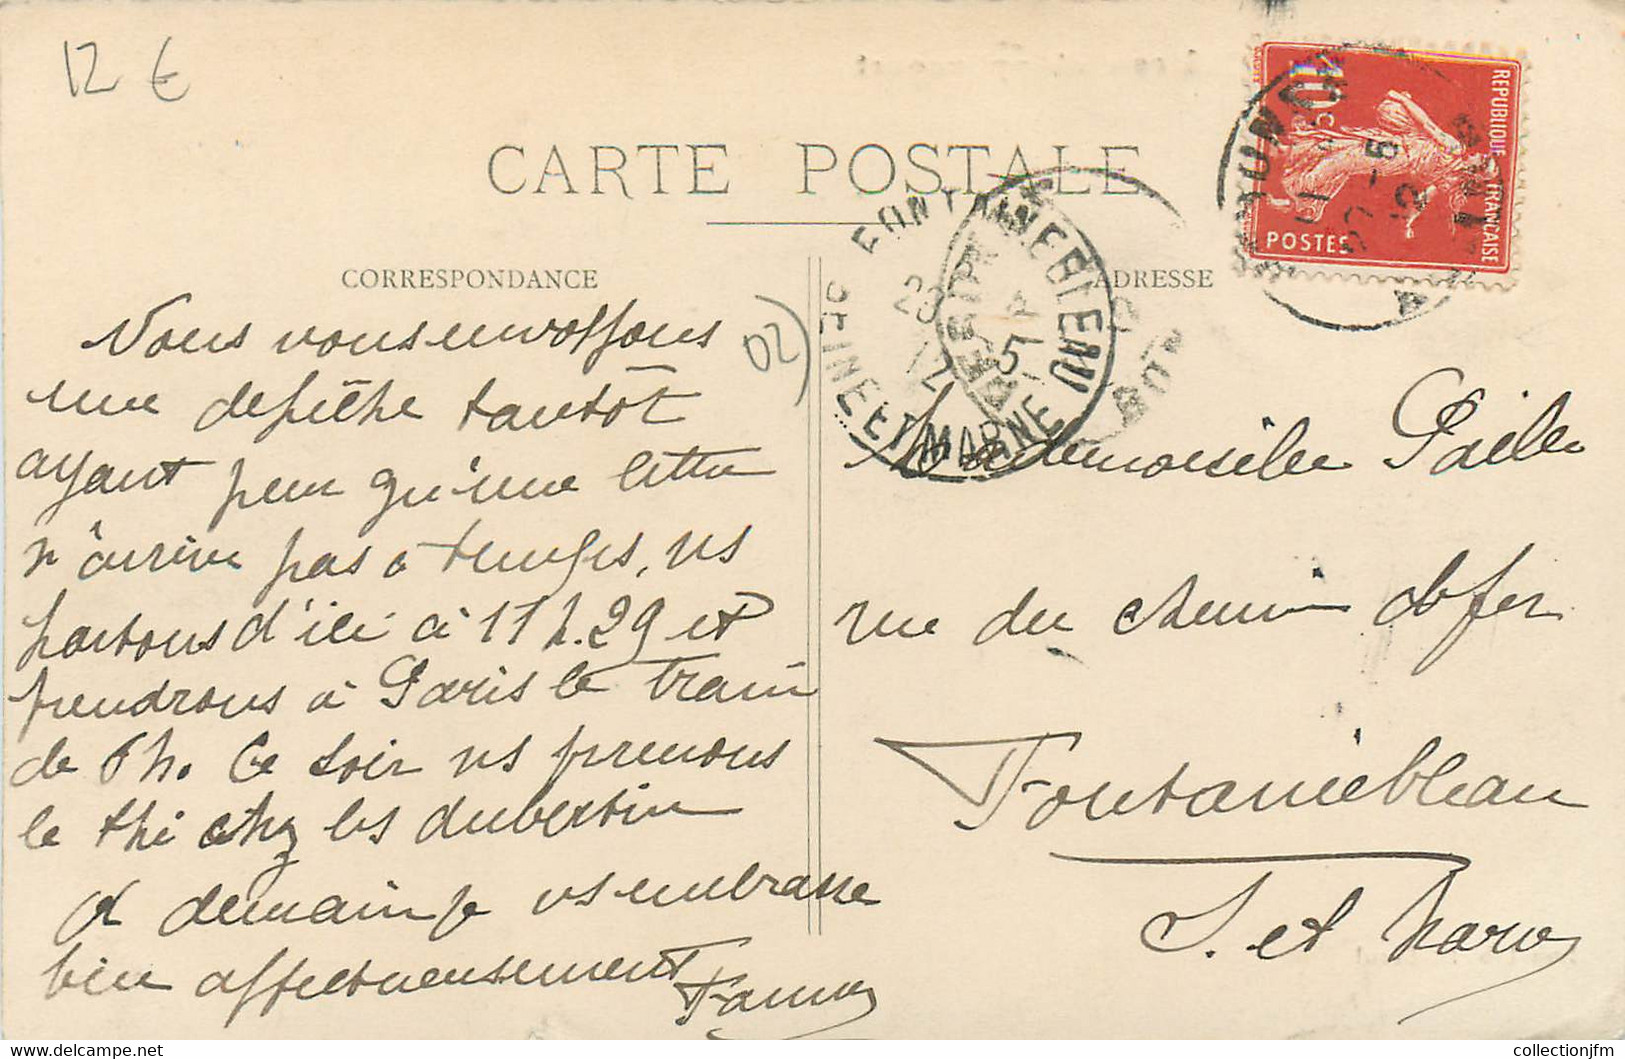 12 €
CARTE POSTALE
CORRESPONDANCE
ADRESSE
REPUBLIQUE FRANÇAISE
10c
POSTES
FONTAINEBLEAU
SEINE ET MARNE
02)
Nous vous envoyons
une dépêche tantôt
ayant peur qu'une lettre
n'arrive pas à temps, ns
partons d'ici à 11h.29 et
prendrons à Paris le train
de 5h. Ce soir ns prenons
le thé chez les dubertin
A demain je vs embrasse
bien affectueusement
Fanny
Mademoiselle Pailler
rue du chemin de fer
Fontainebleau
S. et Marne
collectionjfm